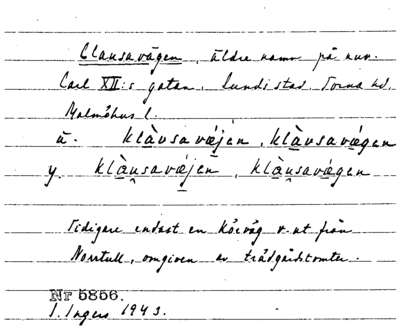 Clausavägen, äldre namn på nuv.
Carl XII:s gatan, Lunds stad Torna hd,
Malmöhus l.
ä. klàusavǽjen, klàusavǽgen
y. klàu̯savǽjen, klàu̯savǽgen
Tidigare endast en körväg v. ut från
Norrtull, omgiven av trädgårdstomter.
Nr 5856.
I. Ingers 1943.